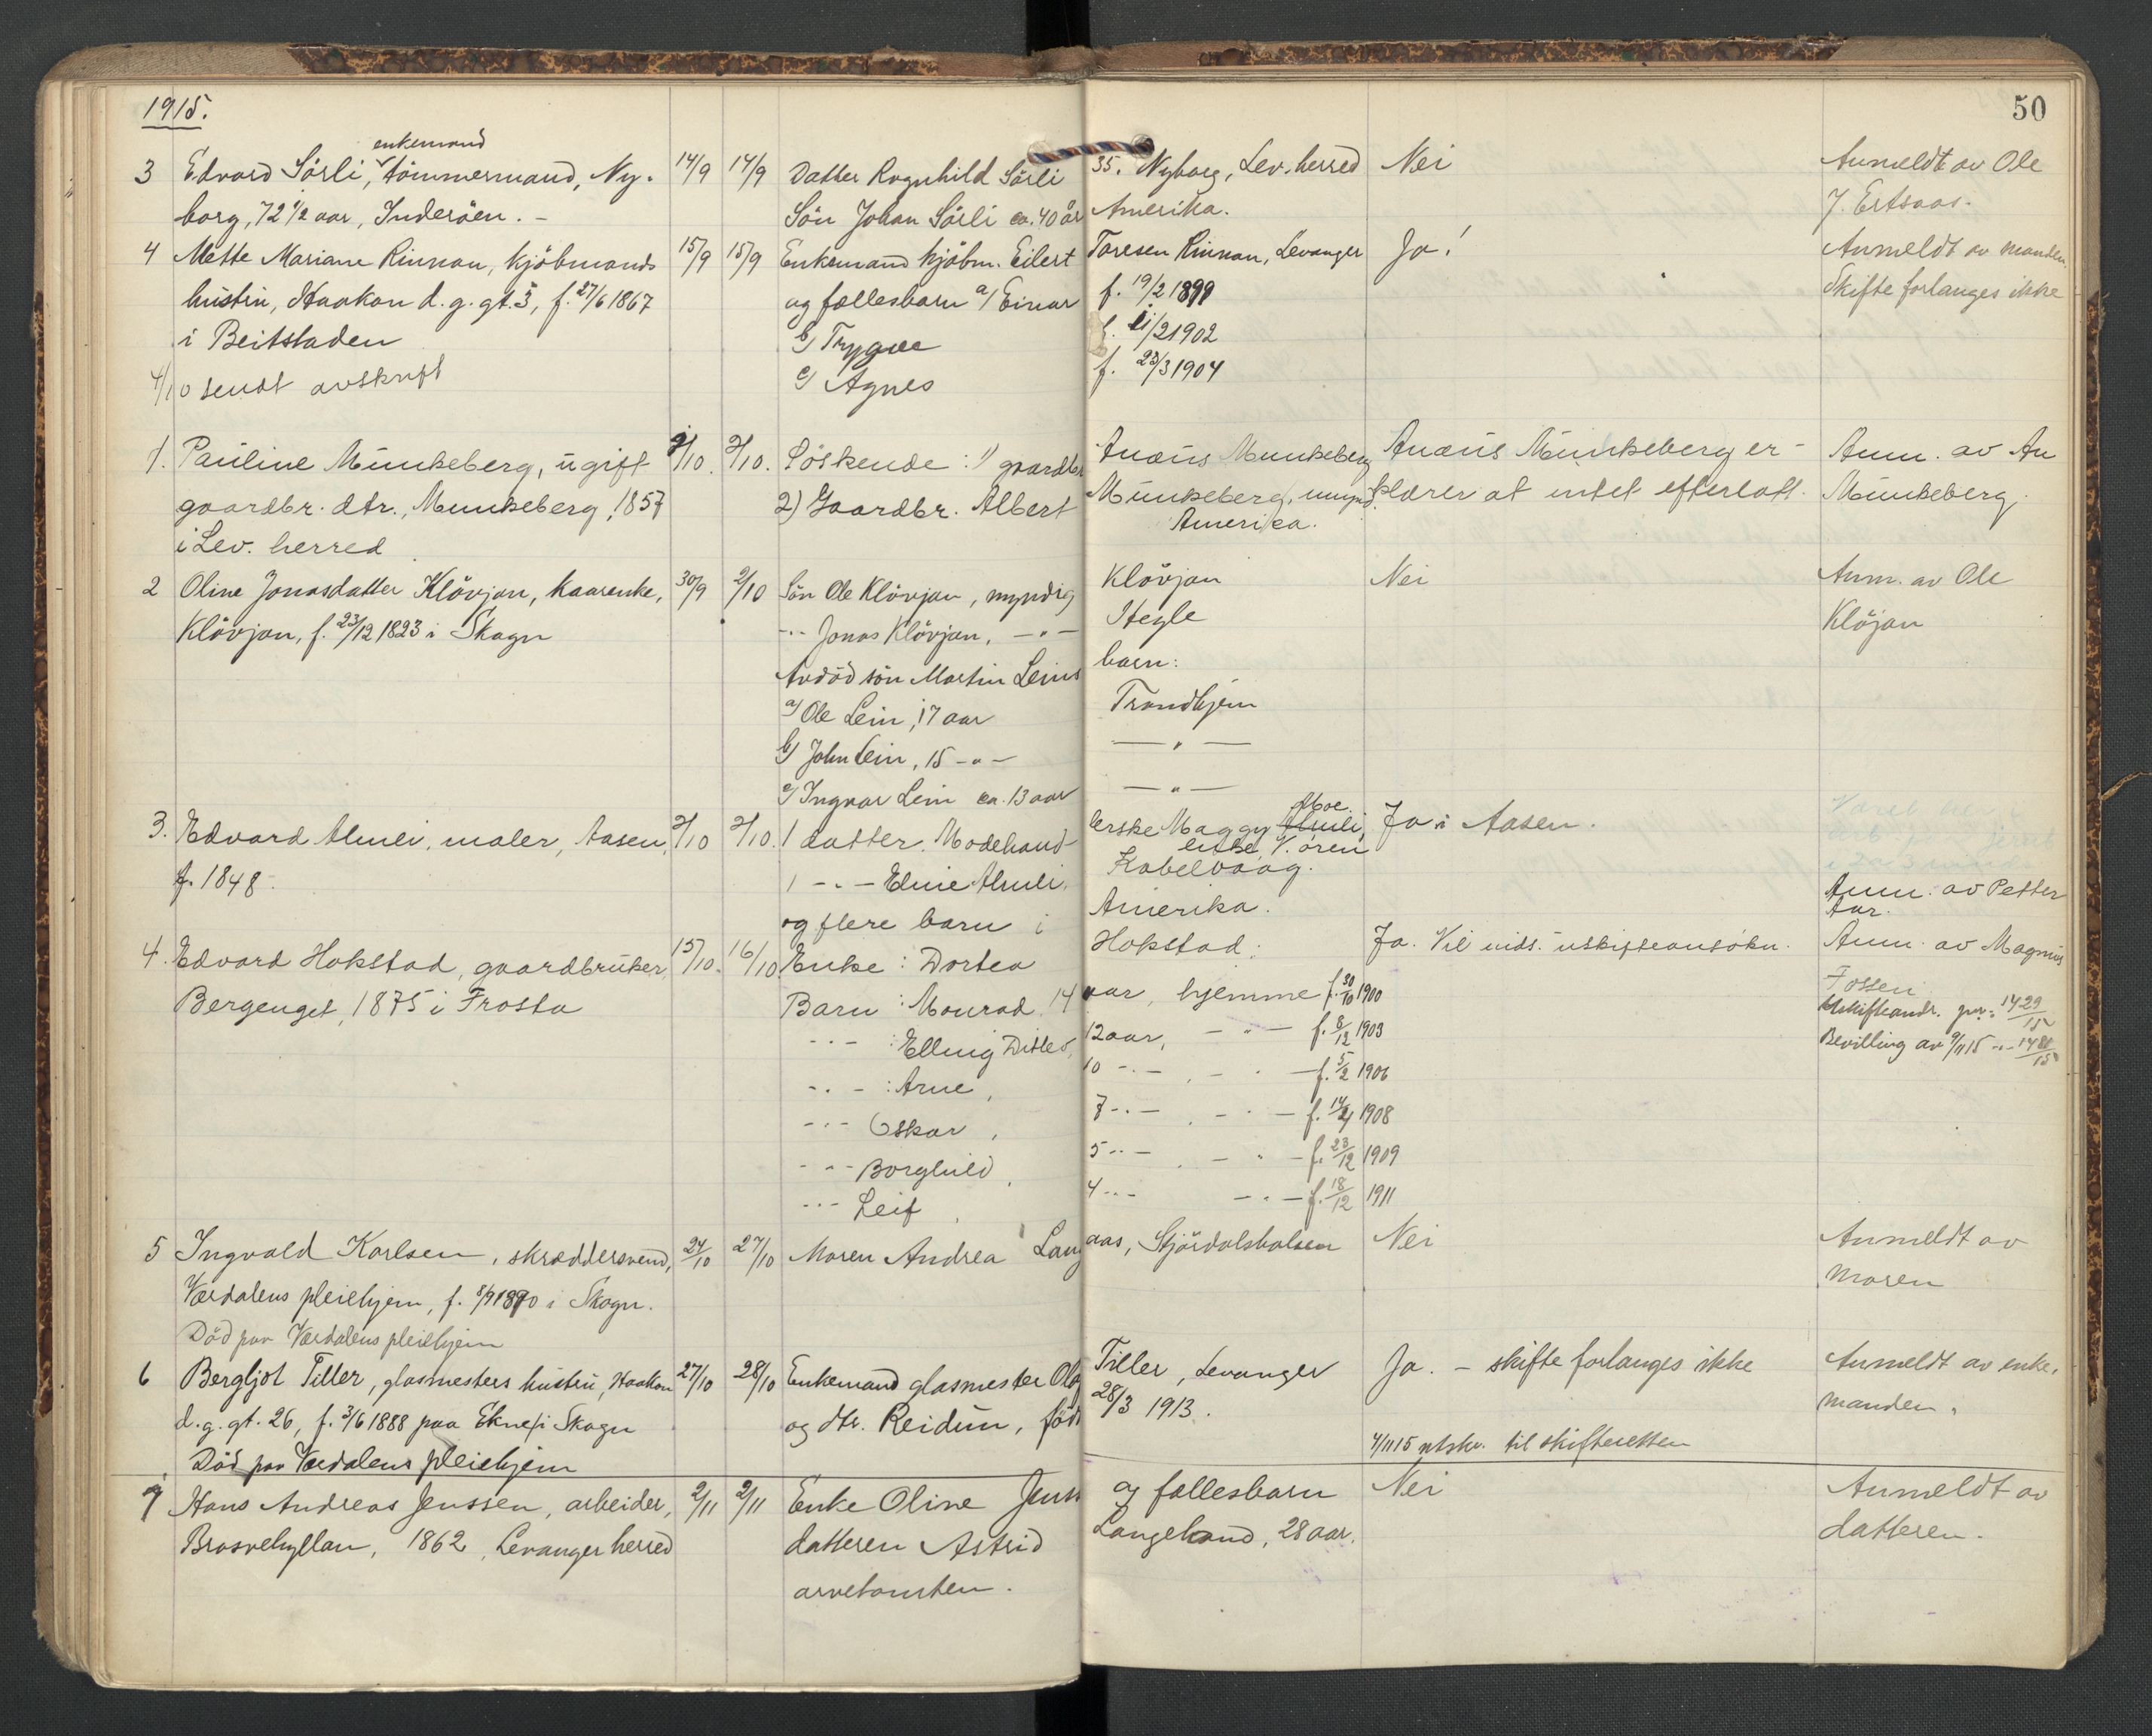 1915.
50
enkemand
3 Edvard Sörli, tömmermand, Ny- 14/9 17/9 Datter Ragnhild Sörli 35. Nyborg, Lev. herred Nei Anmeldt av Ole
borg, 72 1/2 aar, Inderöen. - Sön Johan Sörli ca. 40 år Amerika. J. Ertsaas.
4 Mette Mariane Rinnan, kjöbmands 15/9 15/9 Enkemand kjöbm. Eilert Toresen Rinnan, Levanger Ja! Anmeldt av manden.
hustru, Haakon d. g. gt. 5, f. 27/6 1867 og fællesbarn a/ Einar f. 19/2 1899 Skifte forlanges ikke
i Beitstaden b/ Trygve /2 1902
4/10 sendt avskrift c/ Agnes f. 23/3 1904
1. Pauline Munkeberg, ugift 2/10. 2/10. Söskende: 1) gaardbr Anæus Munkeberg Anæus Munkeberg er- Anm. av An
gaardbr. dtr., Munkeberg, 1857 2) Gaardbr. Albert Munkeberg, klærer at intet efterlatt. Munkeberg.
i Lev. herred Amerika.
2 Oline Jonasdatter Klövjan, kaarenke, 30/9 2/10 Sön Ole Klövjan, myndig Klövjan Nei Anm. av Ole
Klövjan, f. 23/12 1823 i Skogn -"- Jonas Klövjan, -"- Hegle Klöjan
Avdöd sön Martin Leins barn:
a/ Ole Lein, 17 aar Trondhjem
b/ John Lein, 15 -"- -"-
c/ Ingvar Lein ca. 13 aar -"-
Moe
3. Edvard Almli, maler, Aasen, 2/10 2/10. 1 datter. Modehand- lerske Maggy Almli, Ja i Aasen.
f. 1848. 1 -"- Eline Almli, Kabelvaag. Anm. av Petter
og flere barn i Amerika. Aar.
4. Edvard Hokstad, gaardbruker, 15/10. 16/10 Enke: Dortea Hokstad. Ja. Vil inds. uskifteansökn. Anm. av Magnus
Bergenget, 1875 i Frosta Barn: Monrad, 14 aar, hjemme f. 30/10 1900 Fossen
Uskifteandr. 1429/15
-"- : Elling Ditlev, 12 aar, -"- f. 8/12 1903 Bevilling av 9/11 15 -"- 1488/15
-"- : Arne, 10 -"-, -"- f. 5/2 1906
-"- Oskar, 7 -"-, -"- f. 14/4 1908
-"- Borghild, 5 -"-, -"- f. 23/12 1909
-"- Leif, 4 -"- -"- f. 18/12 1911
5 Ingvald Karlsen, skræddersvend, 24/10 27/10 Moren Andrea Langaas, Stjördalshalsen Nei Anmeldt av
Værdalens pleiehjem, f. 1890 i Skogn. moren
Död paa Værdalens pleiehjem
6 Bergljot Tiller, glasmesters hustru, Haakon 27/10 28/10 Enkemand glasmester Ol Tiller, Levanger Ja. - skifte forlanges ikke Anmeldt av enke-
d. g. gt. 26, f. 3/6 1888 paa Ekne i Skogn og dtr. Reidun, född 28/3 1913. manden.
Död paa Værdalens pleiehjem 4/11 15 utskr. til skifteretten
7 Hans Andreas Jenssen, arbeider, 2/11 2/11 Enke Oline Jenss og fællesbarn Nei Anmeldt av
Brosvehyllan, 1862, Levanger herred datteren Astrid Langeland, 28 aar. datteren.
arvetomten.